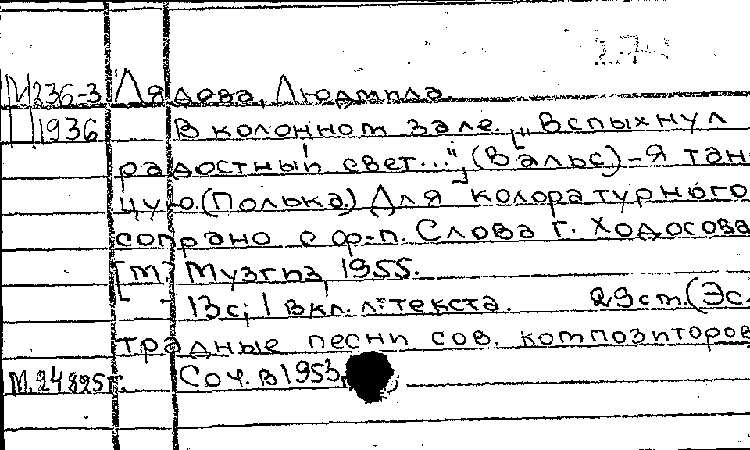 М236-3 Лядова, Людмила.
П1936 В колонном зале. ["Вспыхнул
радостный свет..."] (Вальс)-Я тан-
цую. (Полька.) Для колоратурного
сопрано с ф-п. Слова г. Ходосова
[М.] Музгиз, 1955.
13с; 1 вкл. л. текста. 29 см. (Эс-
традные песни сов. композиторов
М.24895г. Соч. в 1953.